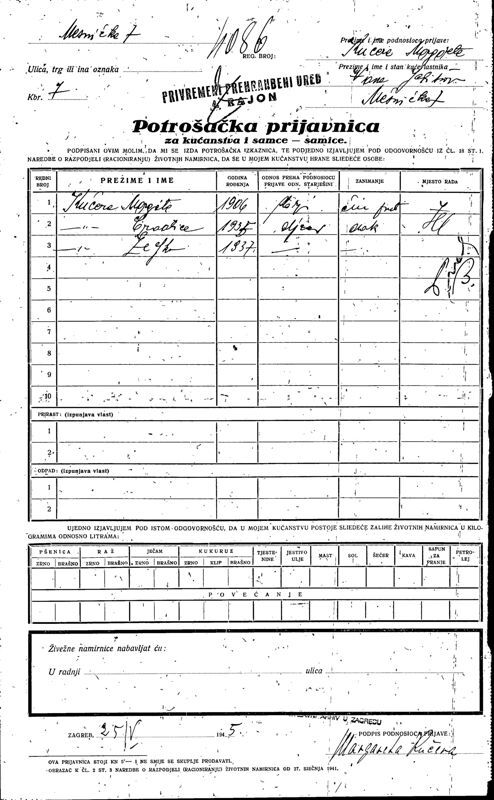 Mesnička 7
4086
REG. BROJ:
Prezime i ime podnosioca prijave:
Kučera Margareta
Ulica, trg ili ina oznaka
Prezime i ime i stan kućevlasnika
Kbr. 7
Mesnička 7
PRIVREMENI PREHRANBENI URED
RAJON
Potrošačka prijavnica
za kućanstva i samce — samice.
PODPISANI OVIM MOLIM, DA MI SE IZDA POTROŠAČKA IZKAZNICA, TE PODJEDNO IZJAVLJUJEM POD ODGOVORNOŠĆU IZ ČL. 18 ST. 1.
NAREDBE O RAZPODJELI (RACIONIRANJU) ŽIVOTNIH NAMIRNICA, DA SE U MOJEM KUĆANSTVU HRANE SLIEDEĆE OSOBE:
REDNI BROJ PREZIME I IME GODINA ROĐENJA ODNOS PREMA PODNOSIOCU PRIJAVE ODN. STARJEŠINI ZANIMANJE MJESTO RADA
1 Kučera Margareta 1906
2 —„—
3 —„— 1937. —
4
5
6
7
8
9
10
PRIRAST: (izpunjava vlast)
1
2
ODPAD: (izpunjava vlast)
1
2
UJEDNO IZJAVLJUJEM POD ISTOM ODGOVORNOŠĆU, DA U MOJEM KUĆANSTVU POSTOJE SLIEDEĆE ZALIHE ŽIVOTNIH NAMIRNICA U KILO-
GRAMIMA ODNOSNO LITRAMA:
PŠENICA RAŽ JEČAM KUKURUZ TJESTE-NINE JESTIVO ULJE MAST SOL ŠEĆER KAVA SAPUN ZA PRANJE PETRO-LEJ
ZRNO BRAŠNO ZRNO BRAŠNO ZRNO BRAŠNO ZRNO KLIP BRAŠNO
POVEĆANJE
Živežne namirnice nabavljat ću:
U radnji ulica
ZAGREB, 25/V 1945.
PODPIS PODNOSIOCA PRIJAVE:
Margareta Kučera
OVA PRIJAVNICA STOJI KN 5'— I NE SMIJE SE SKUPLJE PRODAVATI.
OBRAZAC K ČL. 2 ST. 3 NAREDBE O RAZPODJELI (RACIONIRANJU) ŽIVOTNIH NAMIRNICA OD 27. SIEČNJA 1941.